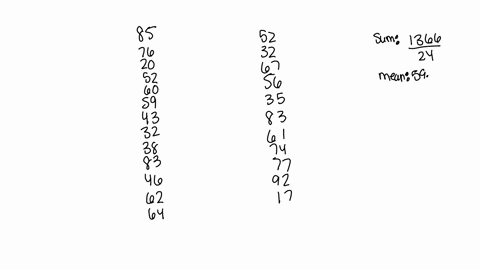 85
76
20
52
60
59
43
32
38
83
46
62
64
52
32
67
56
35
83
61
74
77
92
17
Sum: 1366
24
mean: 59.